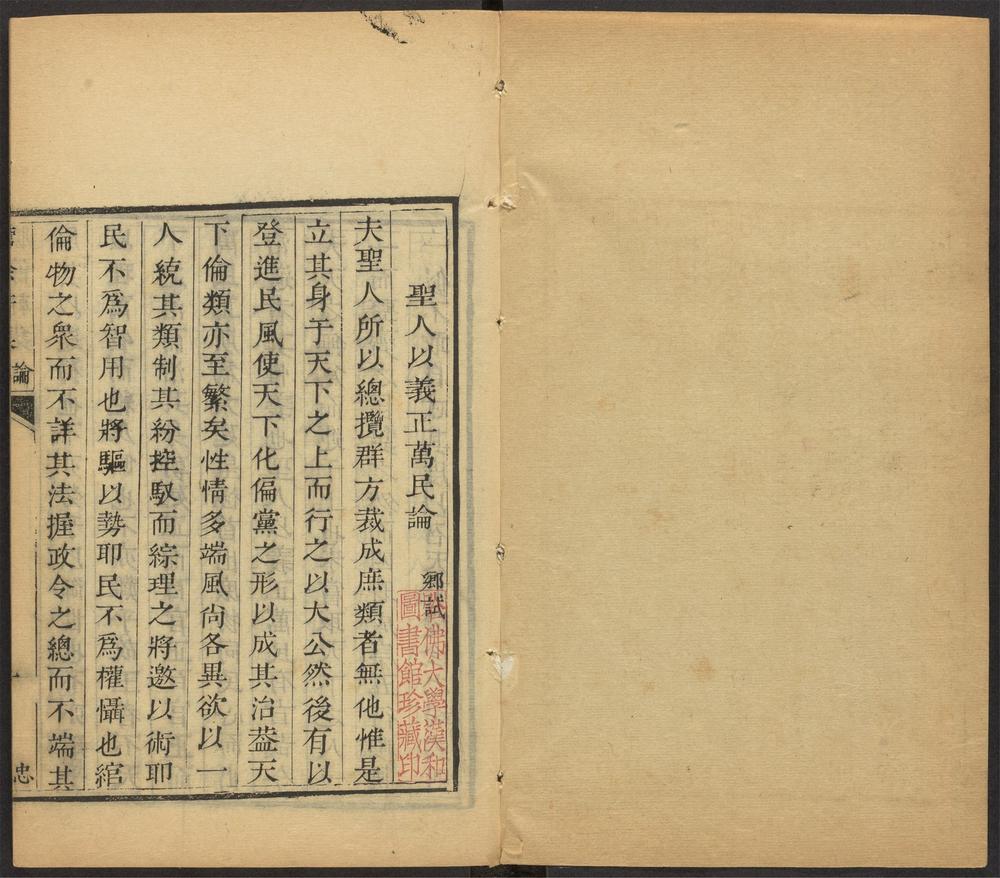 聖人以義正萬民論 鄉試
哈佛大學漢和
圖書館珍藏印
夫聖人所以總攬群方裁成庶類者無他惟是
立其身于天下之上而行之以大公然後有以
登進民風使天下化偏黨之形以成其治葢天
下倫類亦至繁矣性情多端風尚各異欲以一
人統其類制其紛控馭而綜理之將邀以術耶
民不爲智用也將驅以勢耶民不爲權懾也綰
倫物之衆而不詳其法握政令之總而不端其
論
一
忠